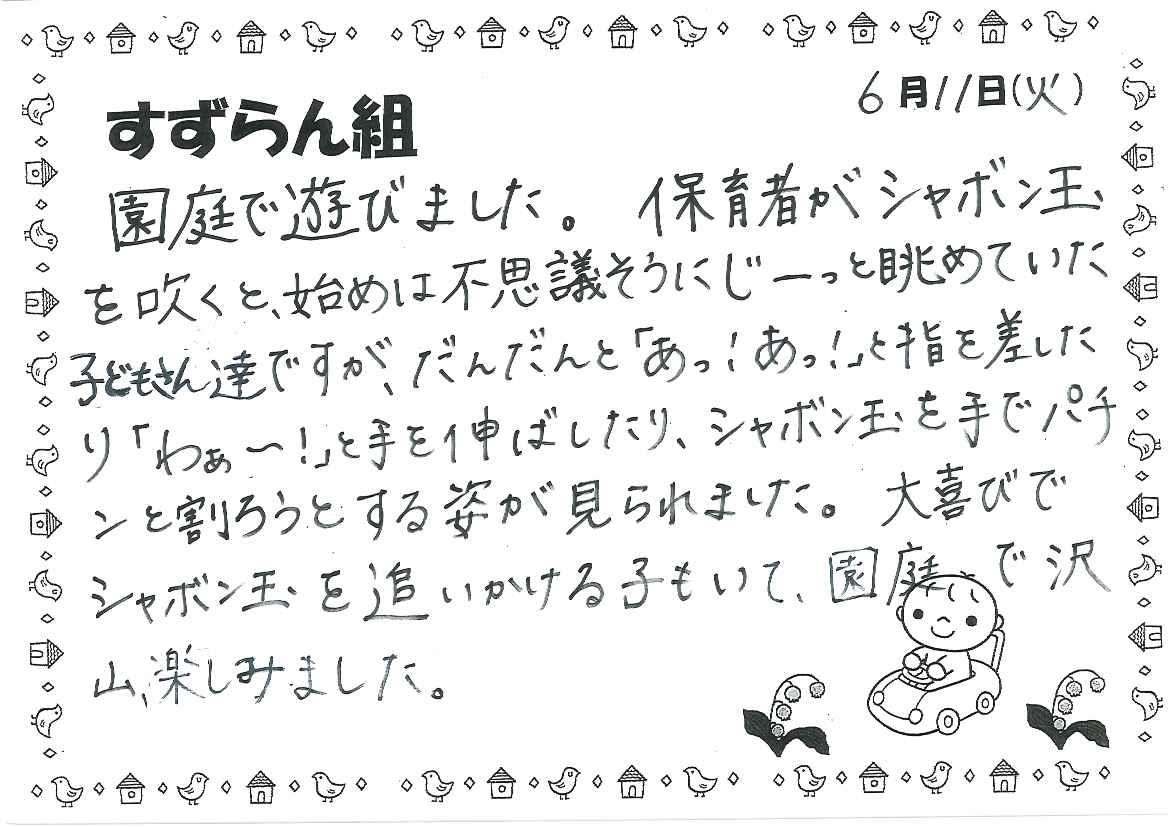 6月11日(火)
すずらん組
園庭で遊びました。 保育者がシャボン玉
を吹くと、始めは不思議そうにじーっと眺めていた
子どもさん達ですが、だんだんと「あっ!あっ!」と指を差した
り「わぁ〜!」と手を伸ばしたり、シャボン玉を手でパチ
ンと割ろうとする姿が見られました。 大喜びで
シャボン玉を追いかける子もいて、園庭で沢
山、楽しみました。